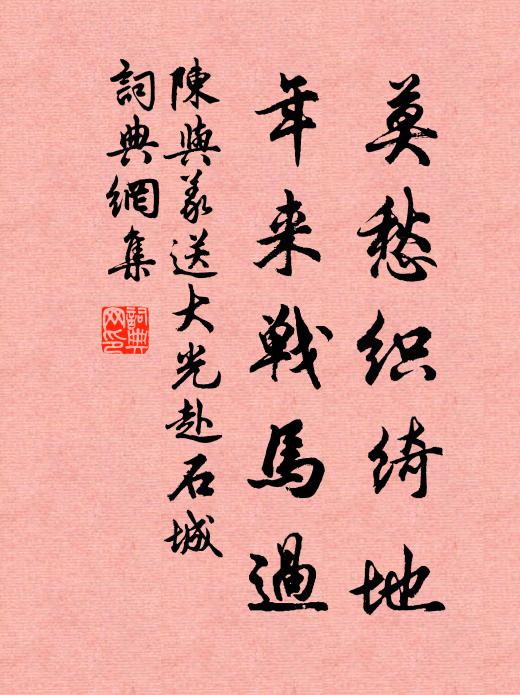 莫愁织绮地
年来戦馬過
陳與義送大光赴石城
詞典網集
詞典网印